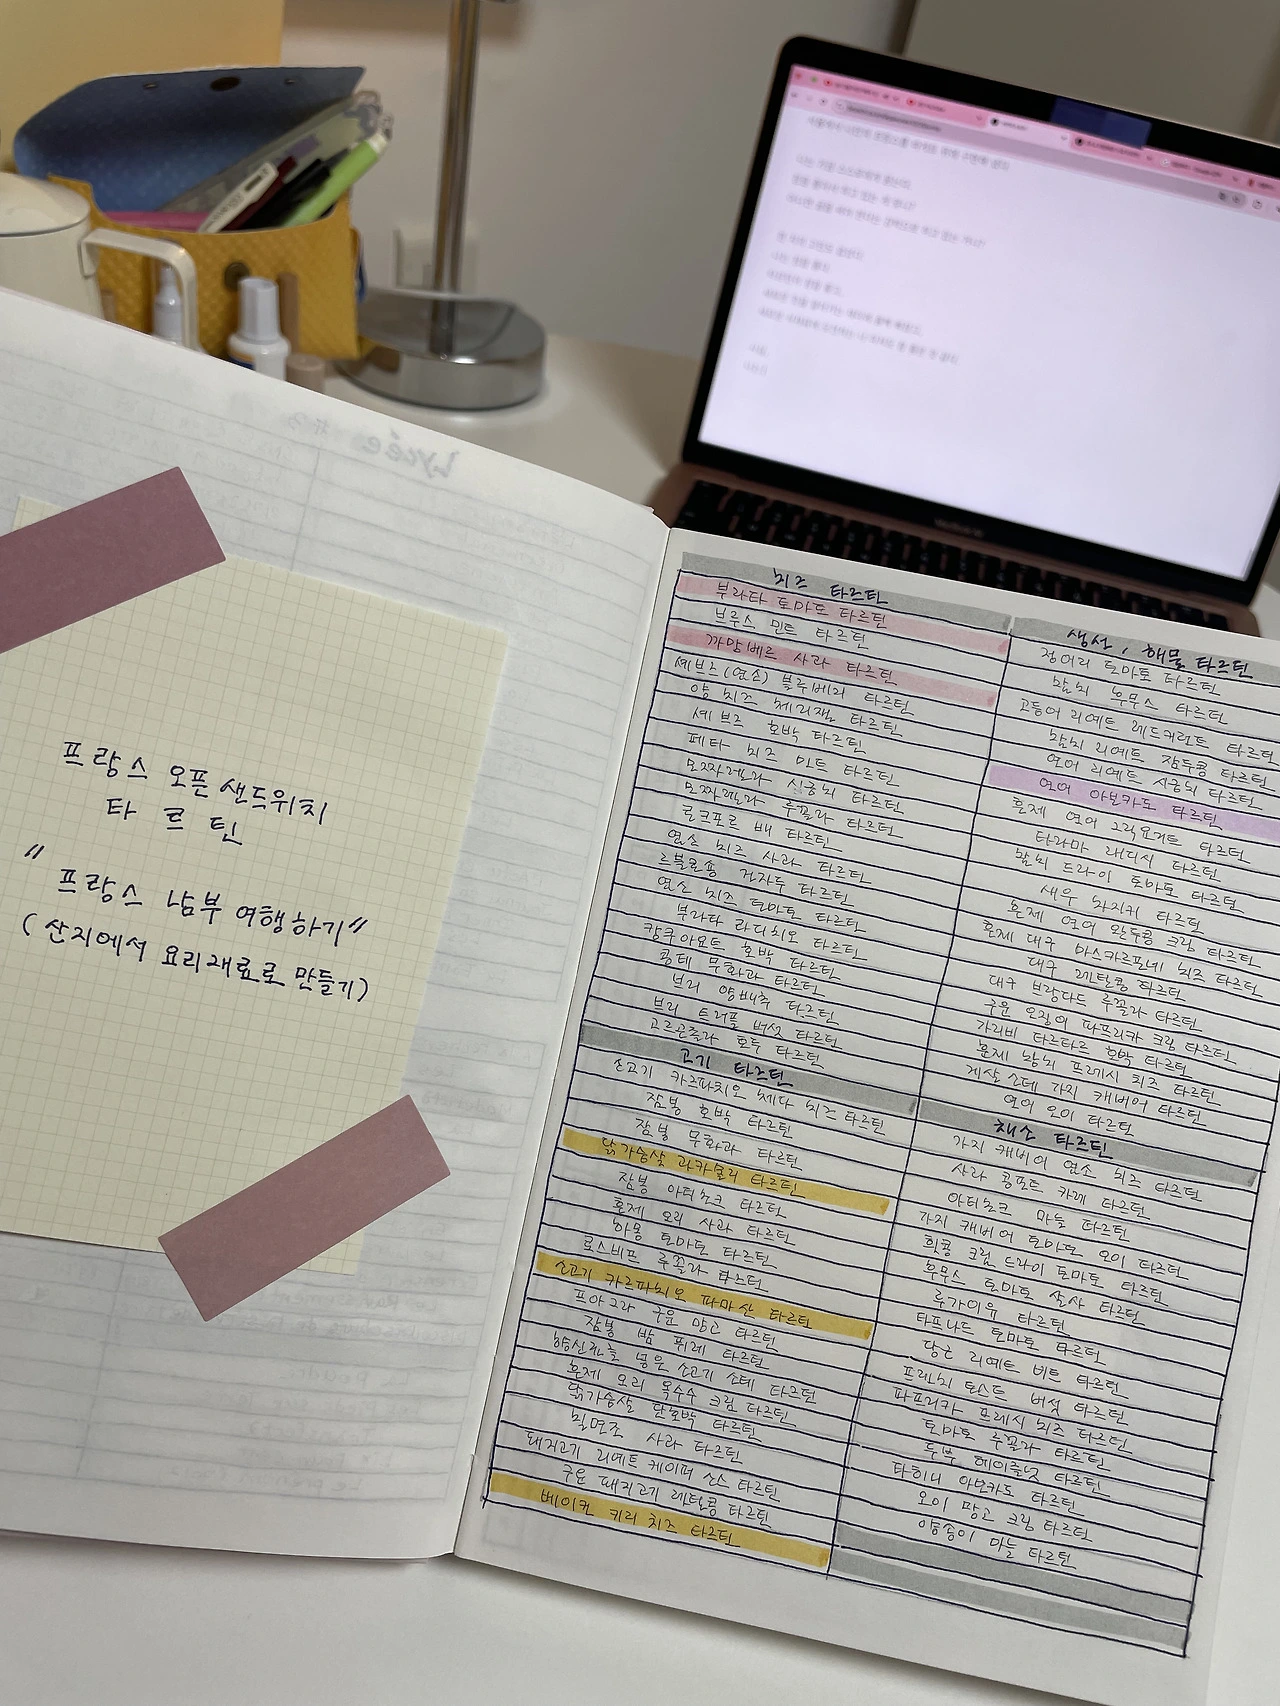 Lycée
프랑스 오픈 샌드위치
타르틴
"프랑스 남부 여행하기"
(산지에서 요리재료로 만들기)
치즈 타르틴
부라타 토마토 타르틴
브루스 민트 타르틴
까망베르 사과 타르틴
셰브르(염소) 블루베리 타르틴
양 치즈 체리잼 타르틴
셰브르 호박 타르틴
페타 치즈 민트 타르틴
모짜렐라 시금치 타르틴
모짜렐라 루꼴라 타르틴
로크포르 배 타르틴
염소 치즈 사과 타르틴
르블로숑 건자두 타르틴
염소 치즈 토마토 타르틴
부라타 라디치오 타르틴
캉쿠아요트 호박 타르틴
콩테 무화과 타르틴
브리 양배추 타르틴
브리 트러플 버섯 타르틴
고르곤졸라 호두 타르틴
고기 타르틴
소고기 카르파치오 체다 치즈 타르틴
잠봉 호박 타르틴
잠봉 무화과 타르틴
닭가슴살 과카몰리 타르틴
잠봉 아티초크 타르틴
훈제 오리 사과 타르틴
하몽 토마토 타르틴
로스비프 루꼴라 타르틴
소고기 카르파치오 파마산 타르틴
프아그라 구운 망고 타르틴
잠봉 밤 퓌레 타르틴
향신료를 넣은 소고기 소테 타르틴
훈제 오리 옥수수 크림 타르틴
닭가슴살 단호박 타르틴
칠면조 사과 타르틴
돼지고기 리예트 케이퍼 소스 타르틴
구운 돼지고기 렌틸콩 타르틴
베이컨 키리 치즈 타르틴
생선, 해물 타르틴
정어리 토마토 타르틴
참치 후무스 타르틴
고등어 리예트 레드커런트 타르틴
참치 리예트 잠두콩 타르틴
연어 리예트 시금치 타르틴
연어 아보카도 타르틴
훈제 연어 그릭요거트 타르틴
타라마 래디시 타르틴
참치 드라이 토마토 타르틴
새우 차지키 타르틴
훈제 연어 완두콩 크림 타르틴
훈제 대구 마스카르포네 치즈 타르틴
대구 렌틸콩 타르틴
대구 브랑다드 루꼴라 타르틴
구운 오징어 파프리카 크림 타르틴
가리비 타르타르 호박 타르틴
훈제 참치 프레시 치즈 타르틴
게살 소테 가지 캐비어 타르틴
연어 오이 타르틴
채소 타르틴
가지 캐비어 염소 치즈 타르틴
사과 콩포트 카레 타르틴
아티초크 마늘 타르틴
가지 캐비어 토마토 오이 타르틴
흰콩 크림 드라이 토마토 타르틴
후무스 토마토 살사 타르틴
루가이유 타르틴
타프나드 토마토 타르틴
당근 리예트 비트 타르틴
프렌치 토스트 버섯 타르틴
파프리카 프레시 치즈 타르틴
토마토 루꼴라 타르틴
두부 헤이즐넛 타르틴
타히니 아보카도 타르틴
오이 망고 크림 타르틴
양송이 마늘 타르틴